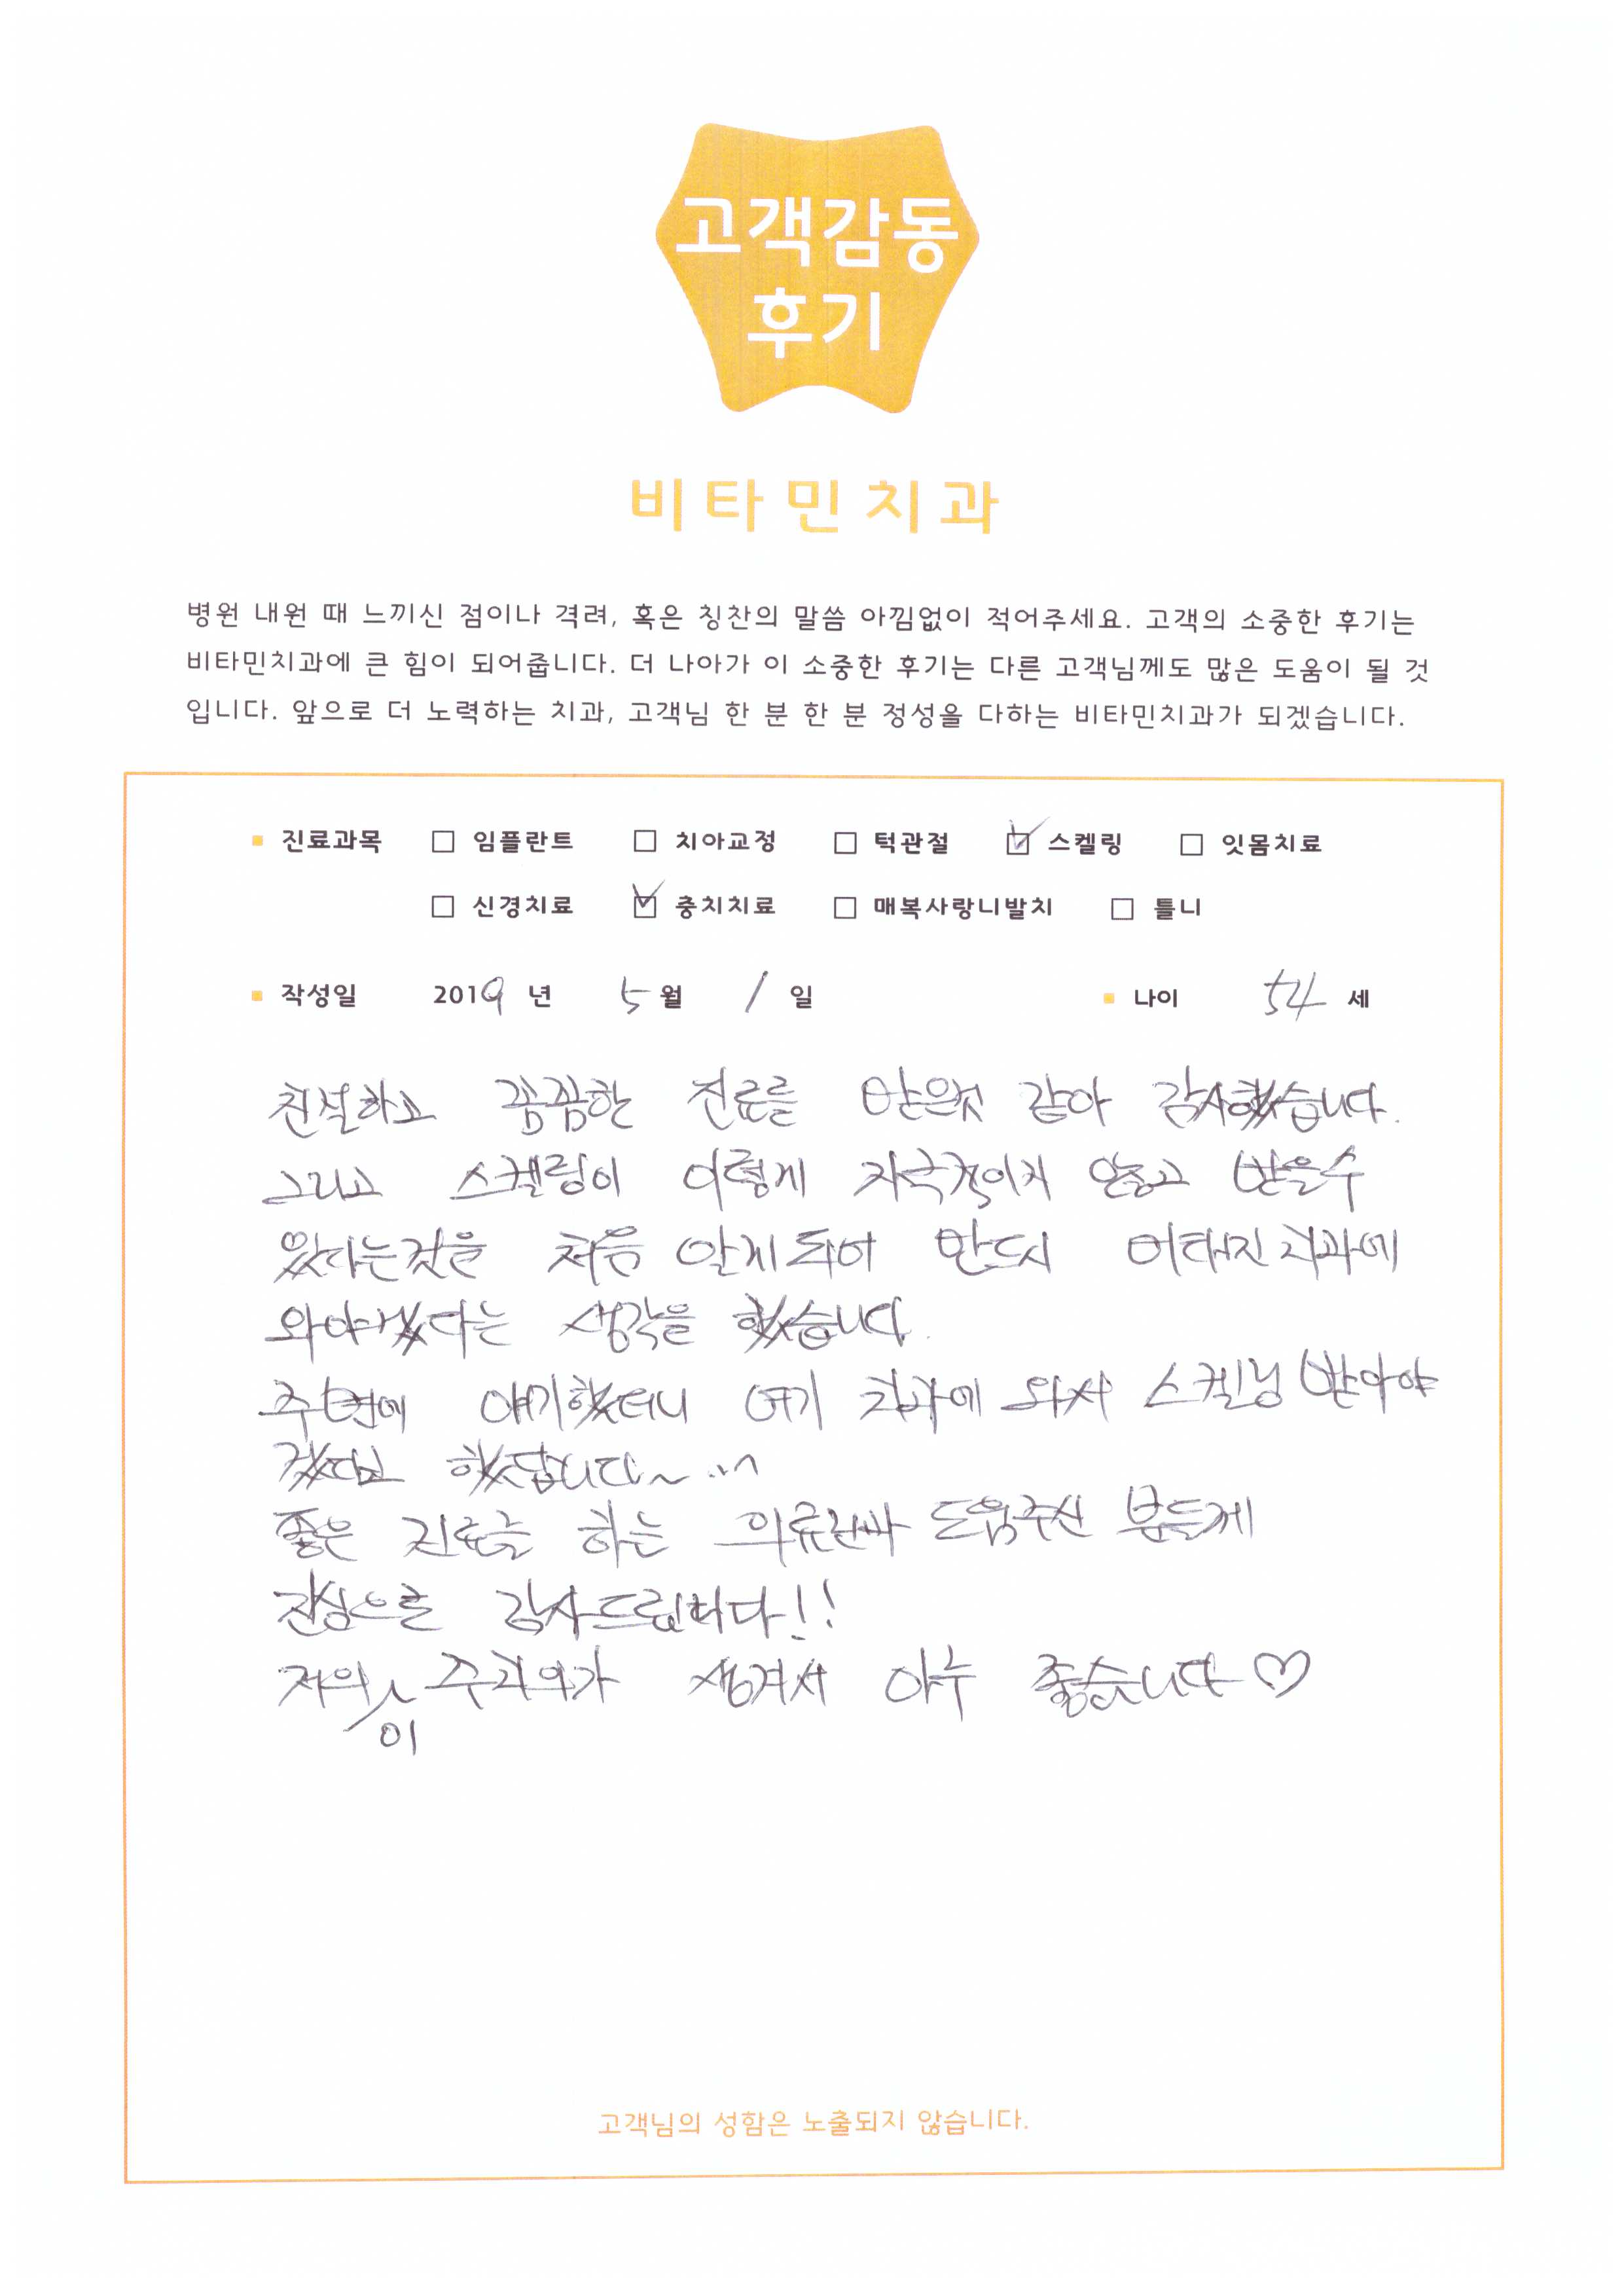 고객감동
후기
비타민치과
병원 내원 때 느끼신 점이나 격려, 혹은 칭찬의 말씀 아낌없이 적어주세요. 고객의 소중한 후기는
비타민치과에 큰 힘이 되어줍니다. 더 나아가 이 소중한 후기는 다른 고객님께도 많은 도움이 될 것
입니다. 앞으로 더 노력하는 치과, 고객님 한 분 한 분 정성을 다하는 비타민치과가 되겠습니다.
진료과목 임플란트 치아교정 턱관절 스켈링 잇몸치료
신경치료 충치치료 매복사랑니발치 틀니
작성일 2019 년 5 월 1 일 나이 54 세
친절하고 꼼꼼한 진료를 받은것 같아 감사했습니다.
그리고 스켈링이 이렇게 자극적이지 않고 받을수
있다는것을 처음 알게되어 반드시 치과에
와야겠다는 생각을 했습니다.
주변에 얘기했더니 여기 치과에 와서 스켈닝 받아야
겠다고 했답니다~
좋은 진료를 하는 도움주신 분들께
진심으로 감사드립니다!!
저의 주치의가 생겨서 아주 좋습니다♡
이
고객님의 성함은 노출되지 않습니다.